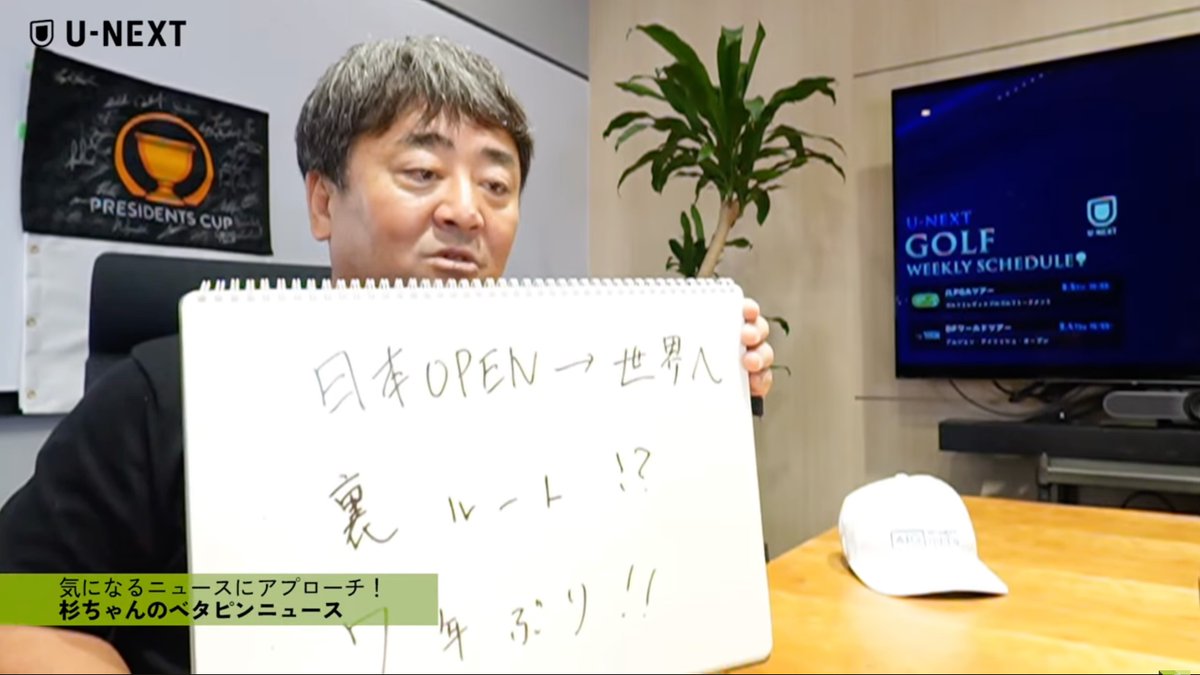 U-NEXT
PRESIDENTS CUP
日本OPEN→世界へ
裏ルート!?
7年ぶり!!
気になるニュースにアプローチ!
杉ちゃんのベタピンニュース
U-NEXT
GOLF
WEEKLY SCHEDULE
U-NEXT
JLPGAツアー
DPワールドツアー